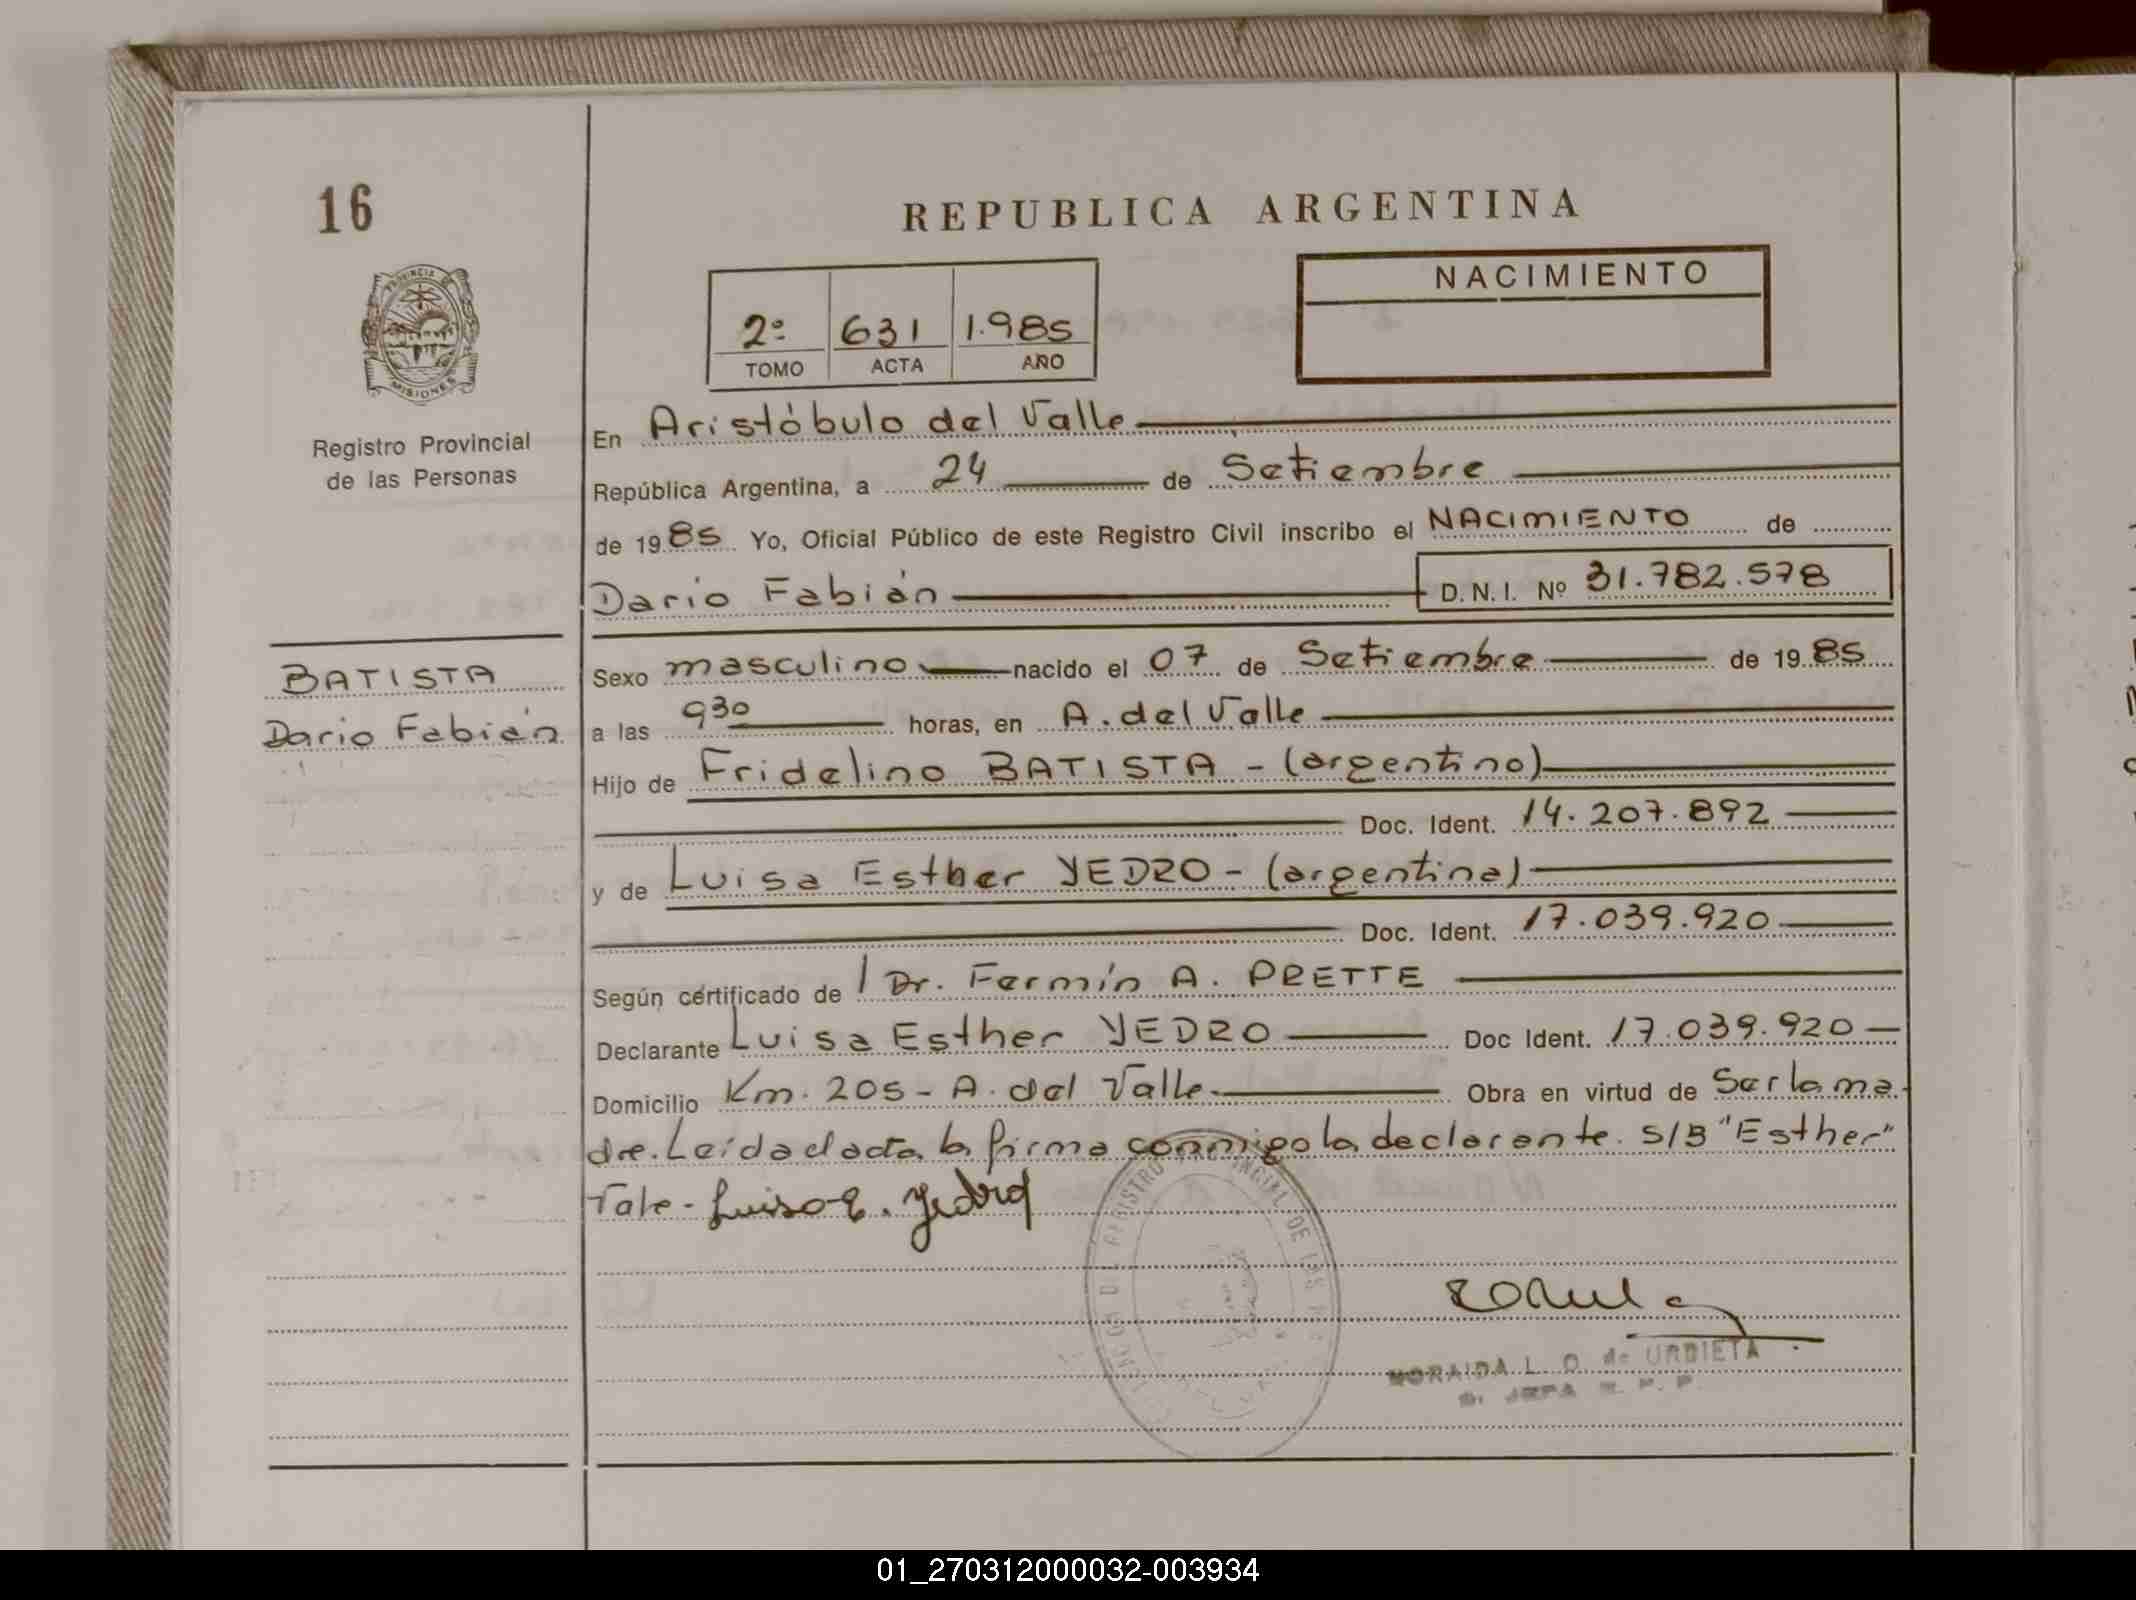 16
REPUBLICA ARGENTINA
PROVINCIA DE
MISIONES
Registro Provincial
de las Personas
2º 631 1.985
TOMO ACTA AÑO
NACIMIENTO
En Aristóbulo del Valle
República Argentina, a 24 de Setiembre
de 1985 Yo, Oficial Público de este Registro Civil inscribo el NACIMIENTO de
Dario Fabián D.N.I. Nº 31.782.578
BATISTA
Dario Fabián
Sexo masculino nacido el 07 de Setiembre de 1985
a las 930 horas, en A. del Valle
Hijo de Fridelino BATISTA - (argentino)
Doc. Ident. 14.207.892
y de Luisa Esther YEDRO - (argentina)
Doc. Ident. 17.039.920
Según certificado de Dr. Fermín A. PRETTE
Declarante Luisa Esther YEDRO Doc Ident. 17.039.920
Domicilio Km. 205 - A. del Valle Obra en virtud de Ser la ma-
dre. Leída el acta la firma conmigo la declarante. S/B "Esther"
Vale - Luisa E. Yedro
REGISTRO PROVINCIAL DE LAS
NORAIDA L. O. de URBIETA
JEFA R. P. P.
01_270312000032-003934